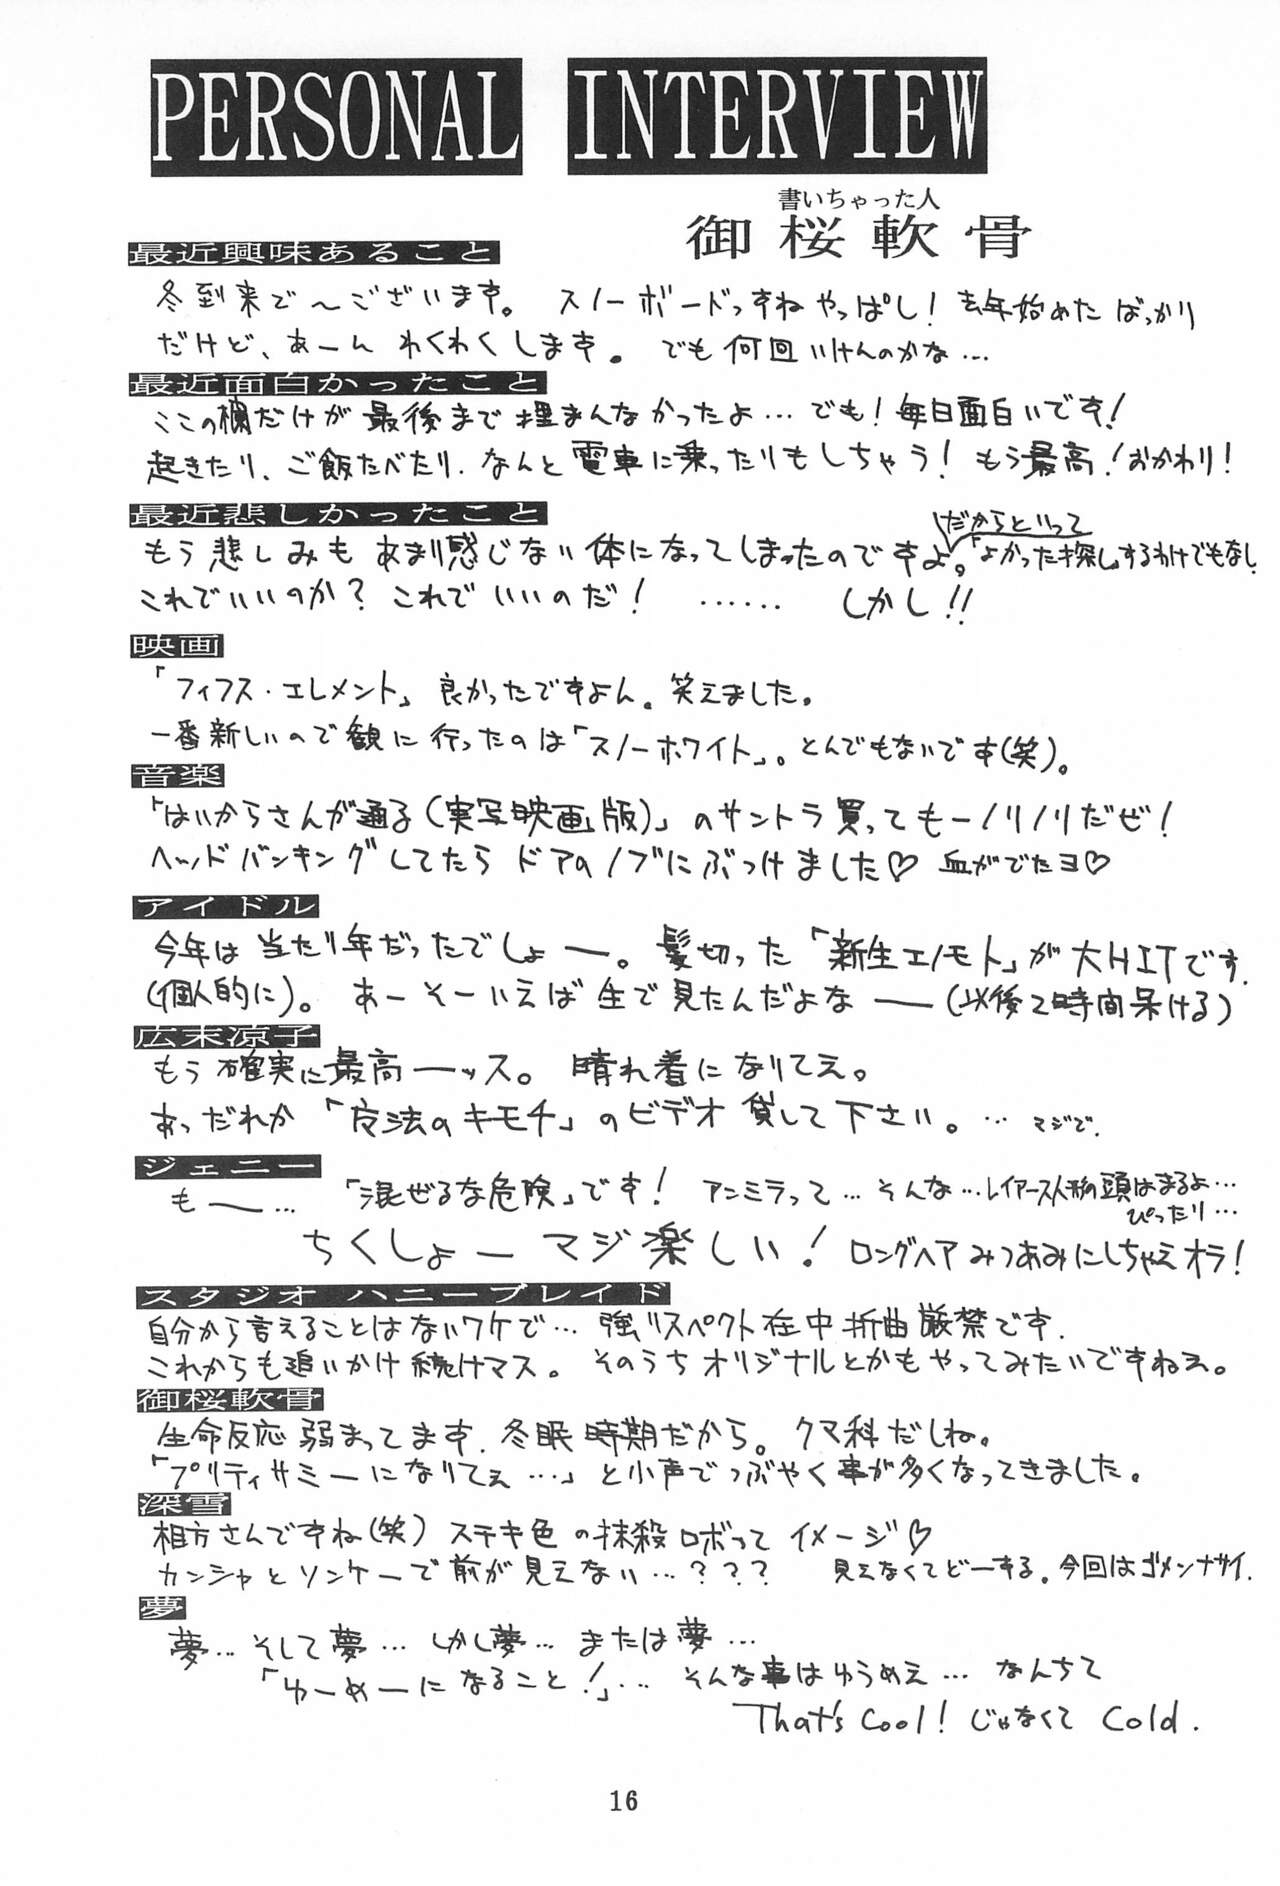 PERSONAL INTERVIEW
書いちゃった人
御桜軟骨
最近興味あること
冬到来で〜ございます。 スノーボードっすね やっぱし! 去年始めた ばっかり
だけど、あーん わくわくします。 でも何回いけんのかな…
最近面白かったこと
ここの欄だけが最後まで埋まんなかったよ…でも!毎日面白いです!
起きたり、ご飯たべたり、なんと電車に乗ったりもしちゃう! もう最高!おかわり!
最近悲しかったこと
だからといって
もう悲しみも あまり感じない体になってしまったのですよ。「よかった探し」するわけでもなし
これでいいのか? これでいいのだ! …… しかし!!
映画
「フィフス・エレメント」良かったですよん。笑えました。
一番新しいので観に行ったのは「スノーホワイト」。とんでもないです(笑)。
音楽
「はいからさんが通る(実写映画版)」のサントラ買ってもーノリノリだぜ!
ヘッドバンキングしてたら ドアのノブにぶつけました♡ 血がでたヨ♡
アイドル
今年は当たり年だったでしょー。髪切った「新生エノモト」が大HITです.
(個人的に)。 あーそーいえば 生で見たんだよなー(以後2時間呆ける)
広末涼子
もう確実に最高ーッス。 晴れ着になりてえ。
あっだれか「反法のキモチ」のビデオ貸して下さい。… マジで.
ジェニー
もー… 「混ぜるな危険」です! アンミラって…そんな…レイアース人形の頭はまるよ…
ぴったり…
ちくしょーマジ楽しい! ロングヘアみつあみにしちゃえオラ!
スタジオ ハニーブレイド
自分から言えることはないワケで… 強リスペクト在中折曲厳禁です.
これからも追いかけ続けマス。 そのうちオリジナルとかもやってみたいですねえ。
御桜軟骨
生命反応弱まってます.冬眠時期だから。 クマ科だしね。
「プリティサミーになりてえ…」と小声でつぶやく事が多くなってきました。
深雪
相方さんですね(笑) ステキ色の抹殺ロボって イメージ♡
カンシャとソンケーで前が見えない…??? 見えなくてどーする。今回はゴメンナサイ.
夢
夢…そして夢… しかし夢… または夢…
「ゆーめーになること!」… そんな事はゆうめえ… なんちて
That's Cool! じゃなくて Cold.
16